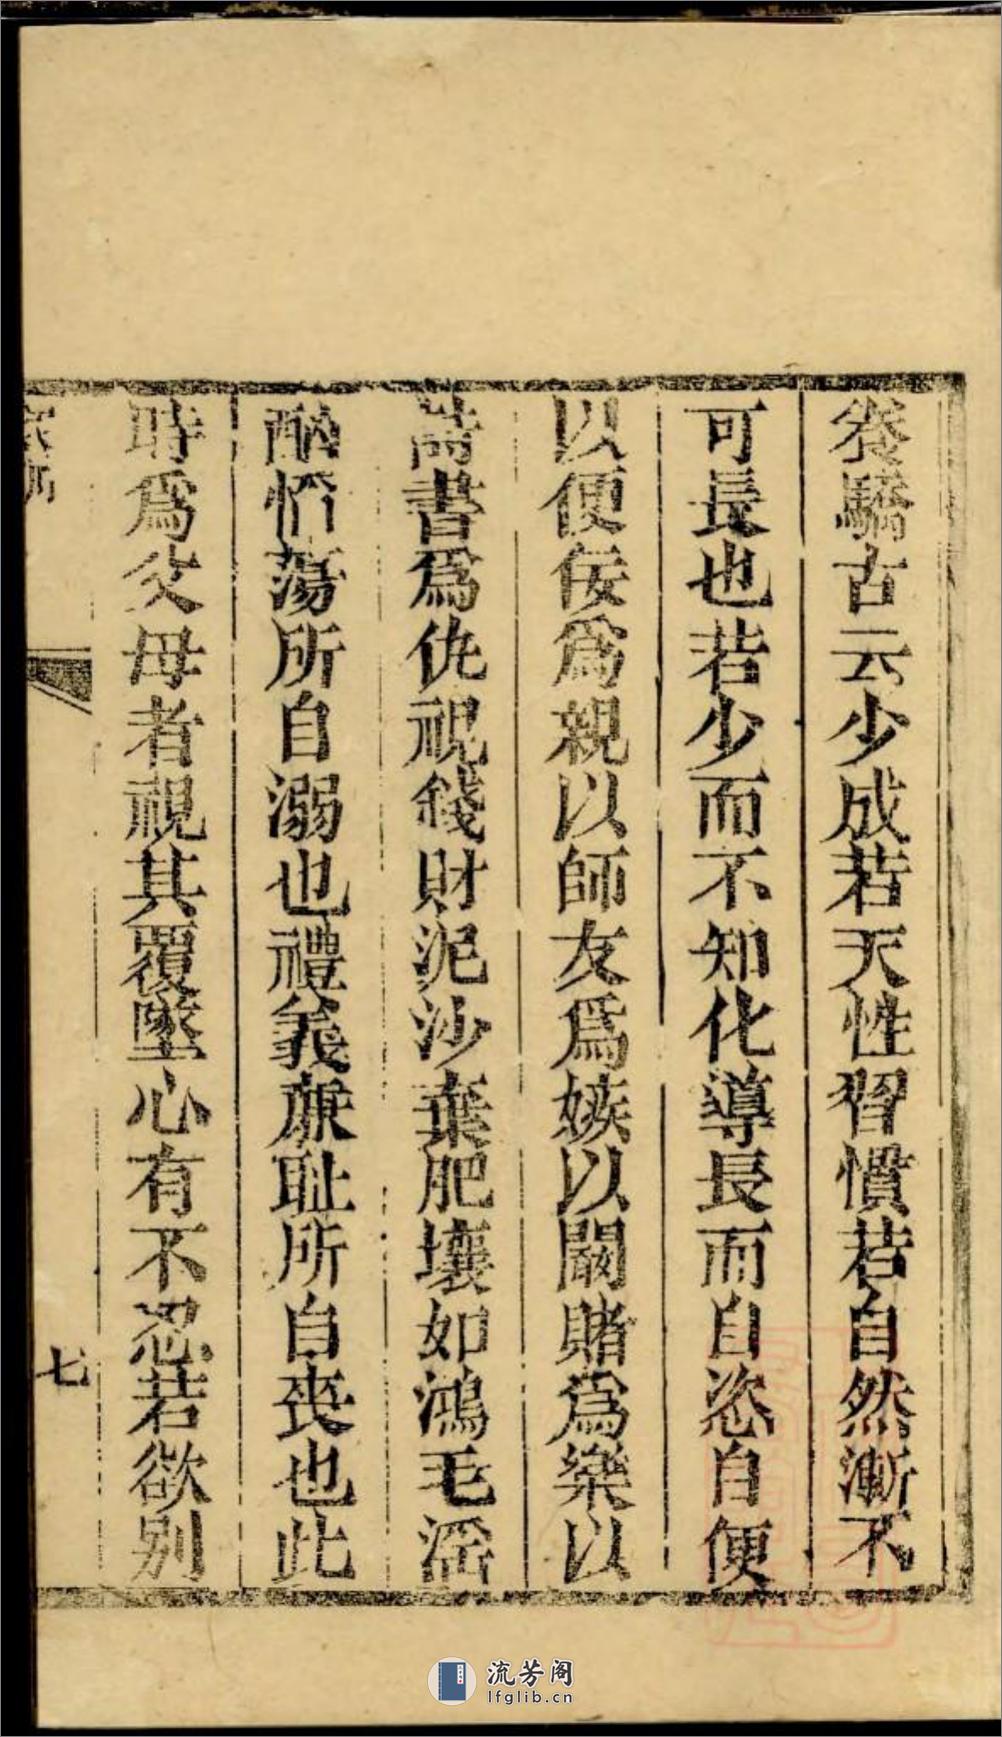 養驕古云少成若天性習慣若自然漸不
可長也若少而不知化導長而自恣自便
以便佞爲親以師友爲嫉以闞賭爲樂以
詩書爲仇視錢財泥沙棄肥壤如鴻毛滛
酗惰蕩所自溺也禮義亷耻所自喪也此
時爲父母者視其覆墜心有不忍若欲别
七
流芳阁
lfglib.cn